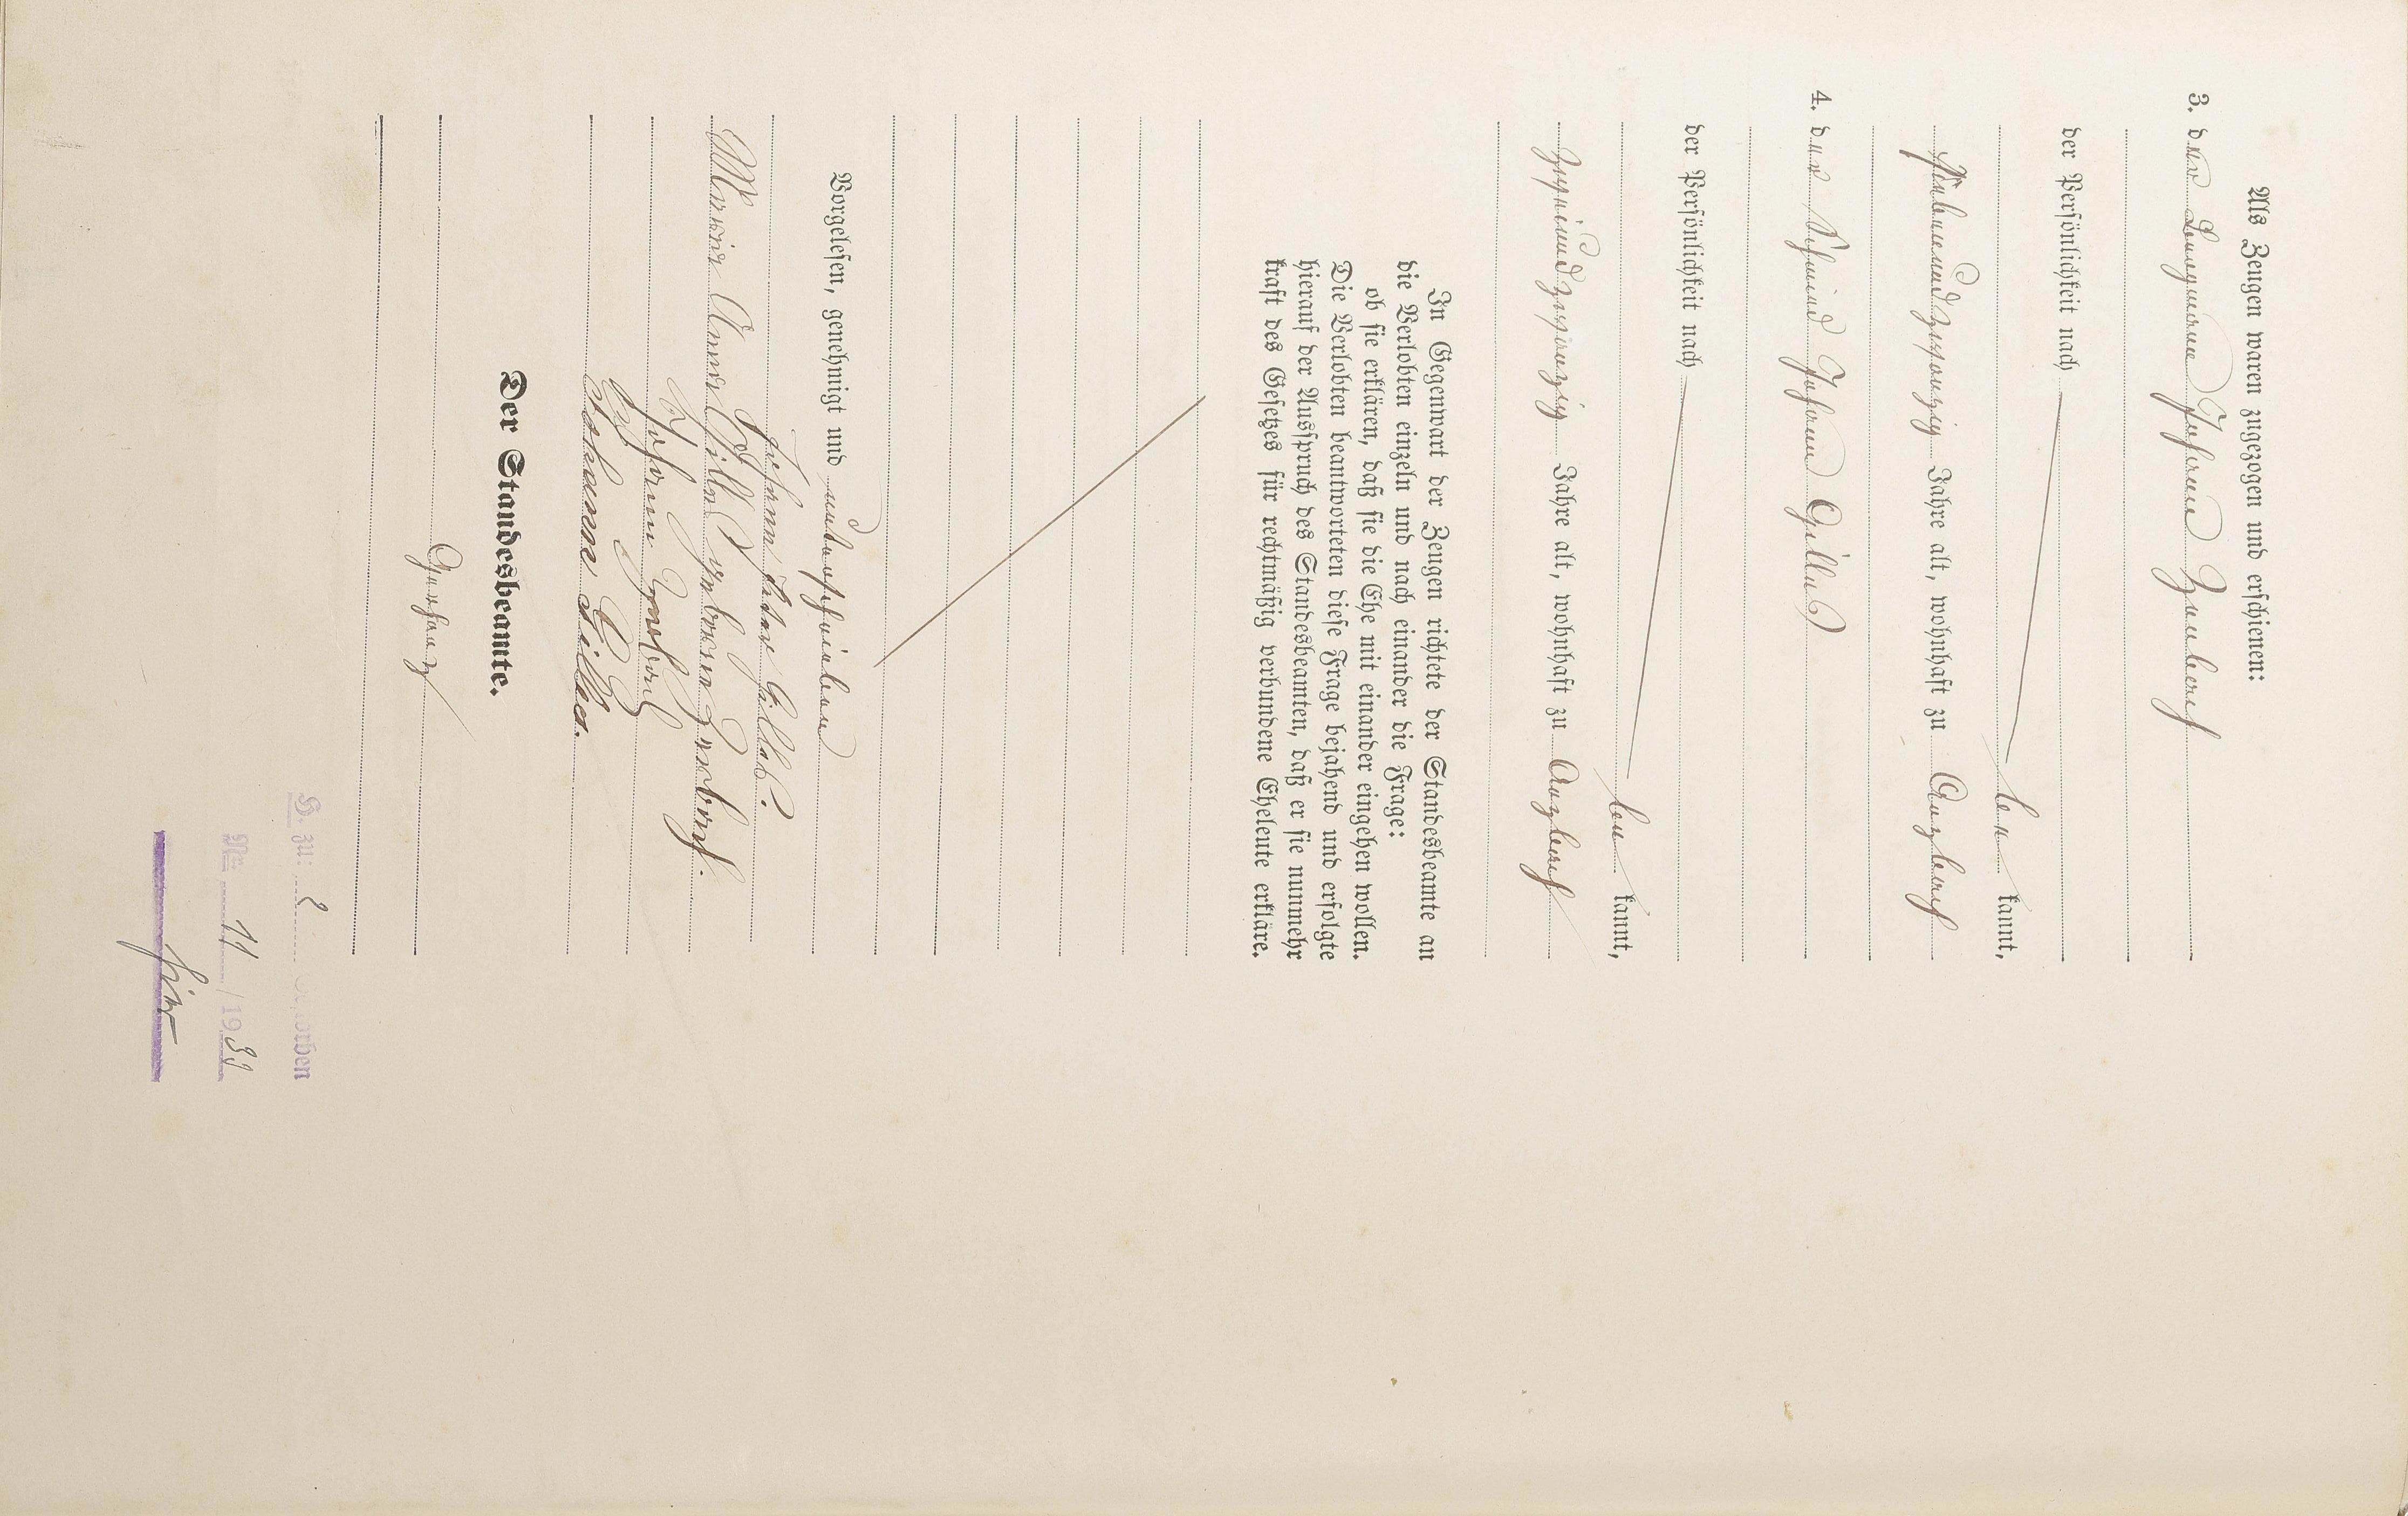 Als Zeugen waren zugezogen und erschienen:
3. der Bergmann Johann
der Persönlichkeit nach
be kannt,
siebenundzwanzig Jahre alt, wohnhaft zu
4. der Schmied Johann Gilles
der Persönlichkeit nach
be kannt,
Jahre alt, wohnhaft zu
In Gegenwart der Zeugen richtete der Standesbeamte an
die Verlobten einzeln und nach einander die Frage:
ob sie erklären, daß sie die Ehe mit einander eingehen wollen.
Die Verlobten beantworteten diese Frage bejahend und erfolgte
hierauf der Ausspruch des Standesbeamten, daß er sie nunmehr
kraft des Gesetzes für rechtmäßig verbundene Eheleute erkläre.
Vorgelesen, genehmigt und unterschrieben
Johann Peter Gilles.
Maria Anna Gilles geborene
Johann
Johann Gilles.
Der Standesbeamte.
H. zu:
Nr. 11 /19
hier